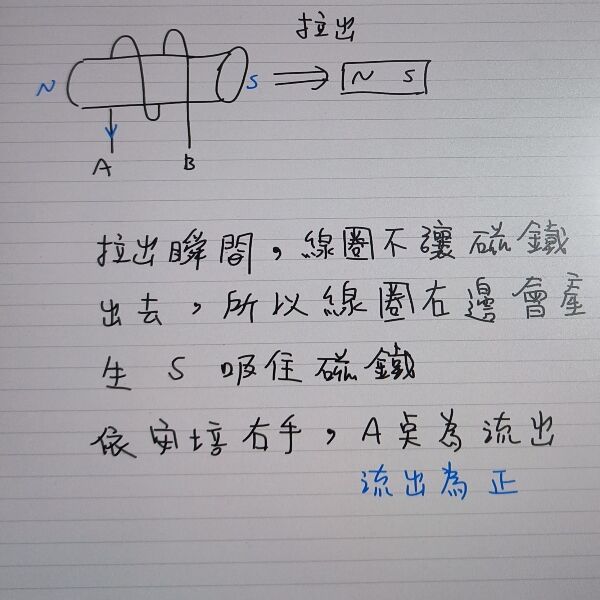 拉出
N S N S
A B
拉出瞬間，線圈不讓磁鐵
出去，所以線圈右邊會產
生 S 吸住磁鐵
依安培右手，A 點為流出
流出為正